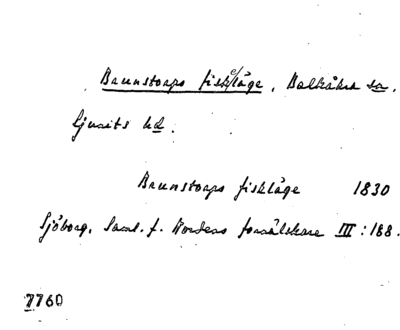 Baunstorps fiskeläge, Balkåkra sn.
Ljunits hd.
Baunstorps fiskläge 1830
Sjöborg, Saml. f. Nordens fornälskare III : 188.
7760